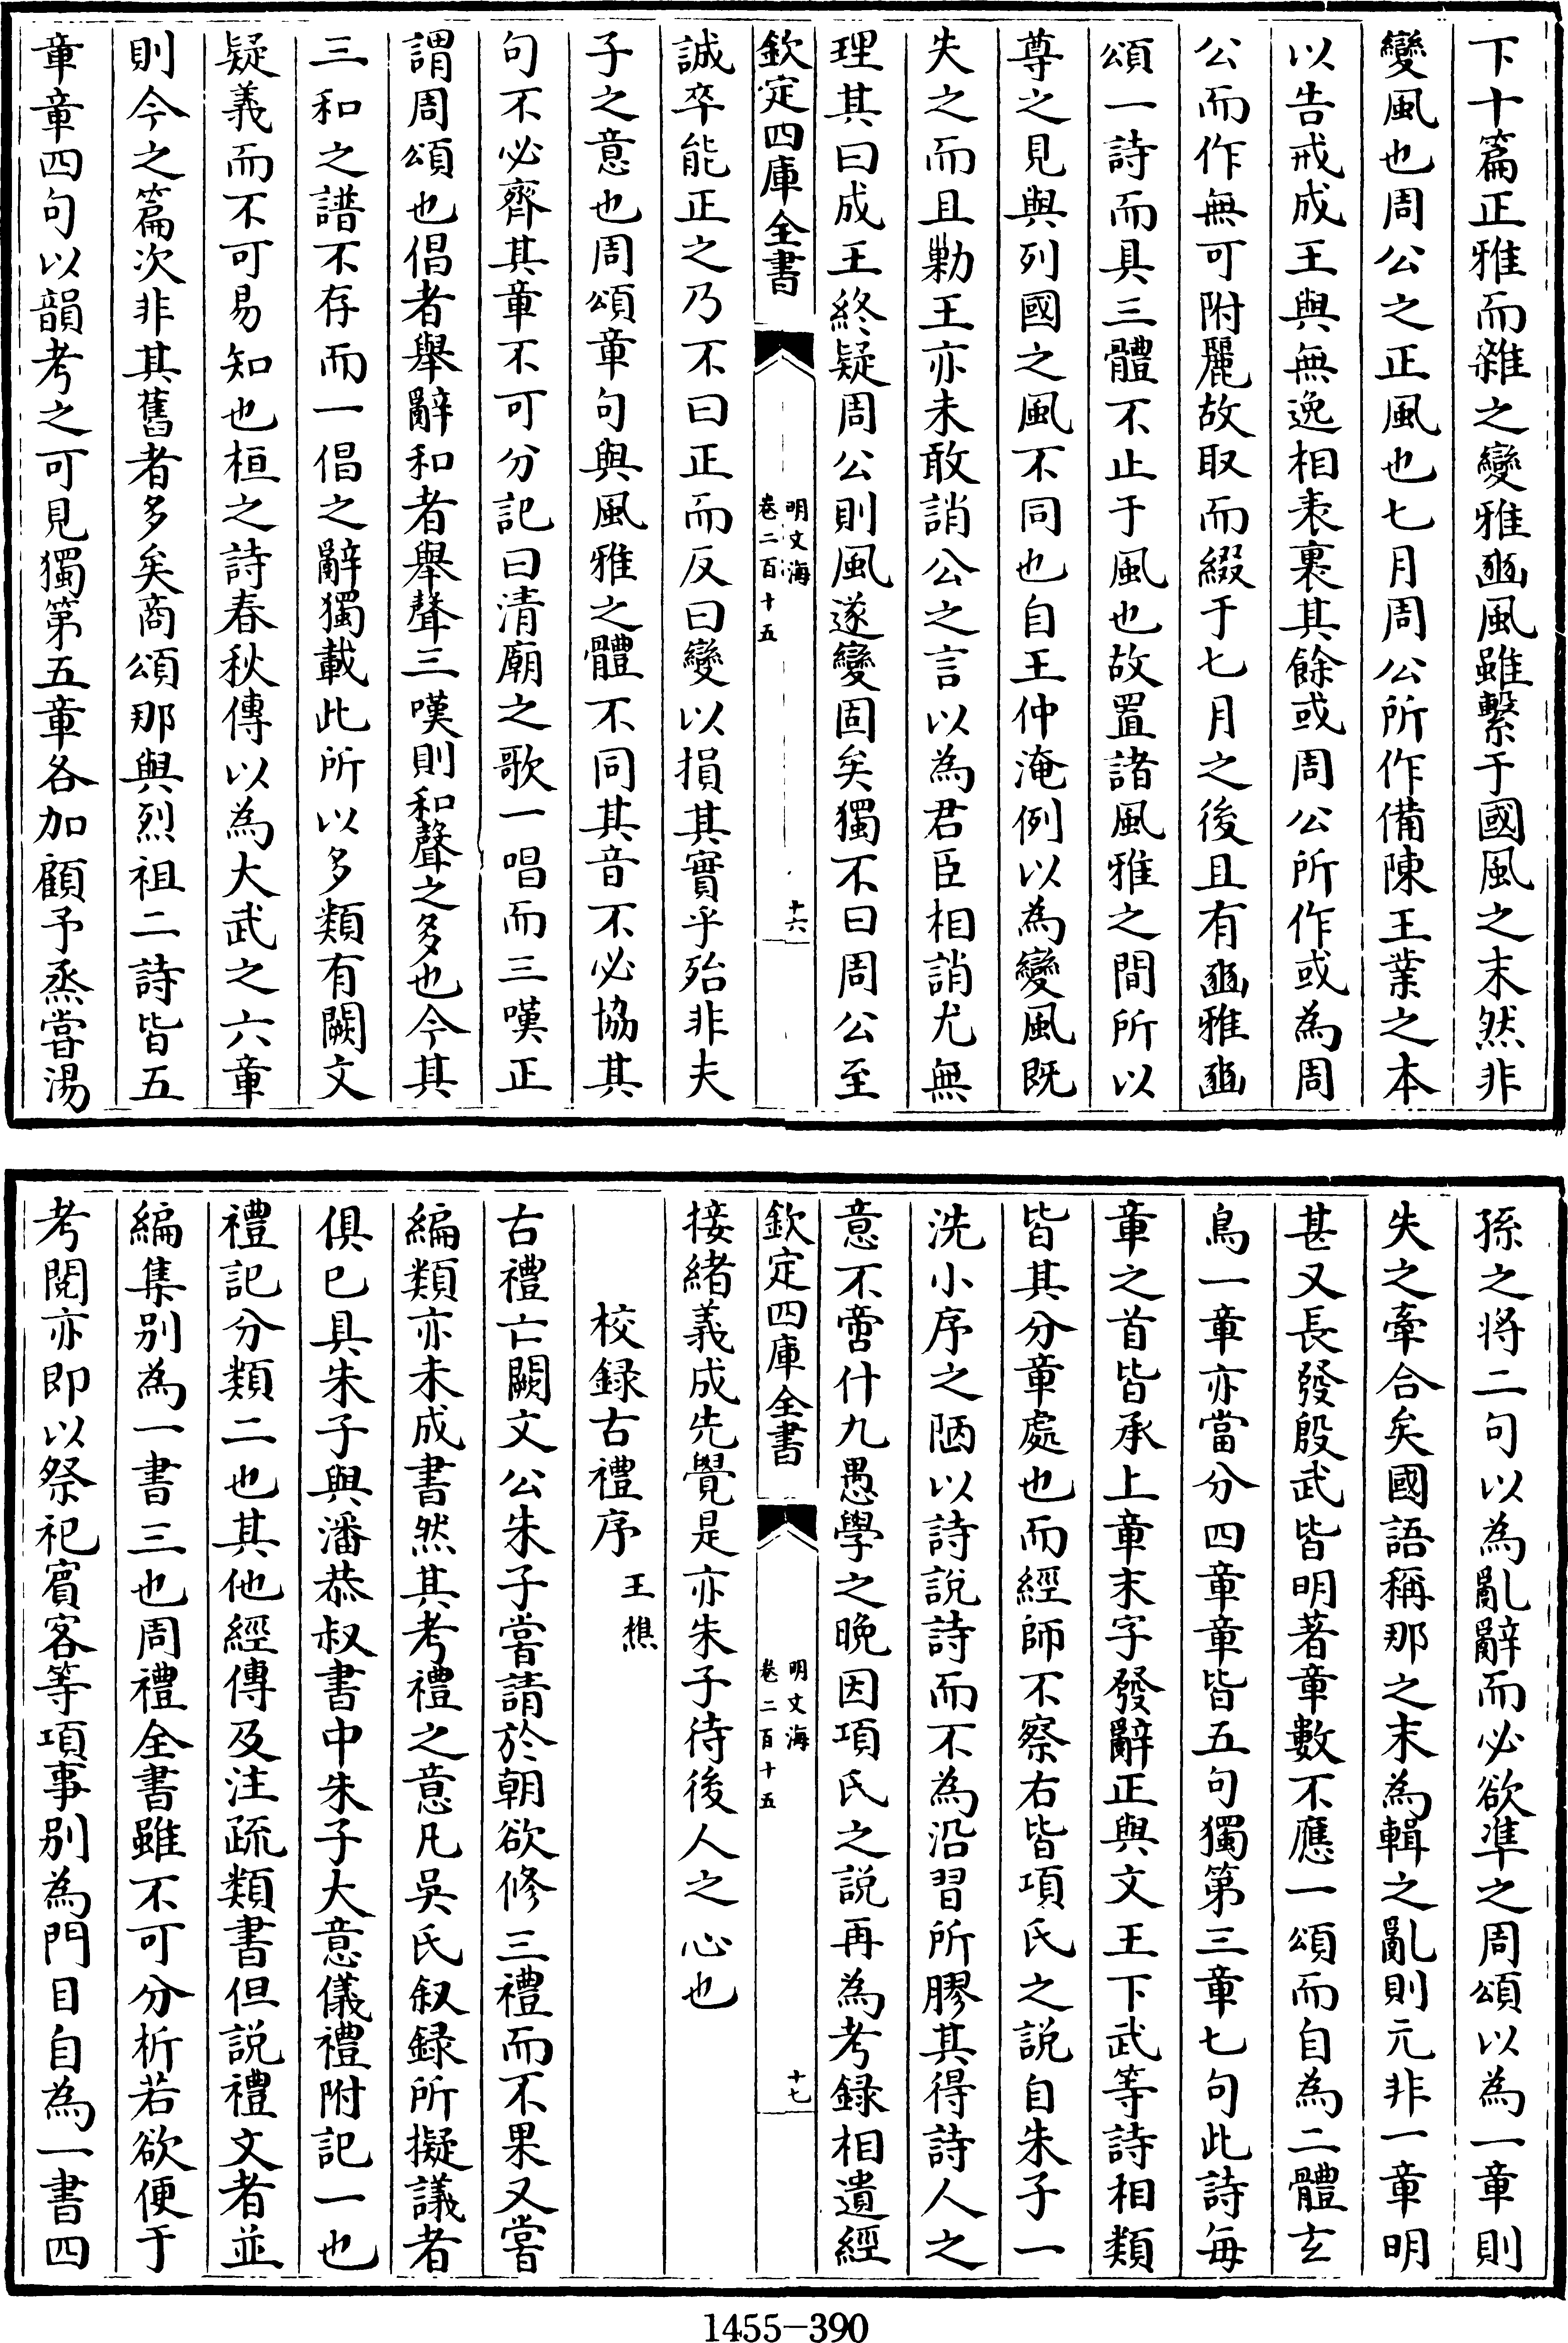 下十篇正雅而雜之變雅豳風雖繫于國風之末然非
變風也周公之正風也七月周公所作備陳王業之本
以告戒成王與無逸相表裏其餘或周公所作或為周
公而作無可附麗故取而綴于七月之後且有豳雅豳
頌一詩而具三體不止于風也故置諸風雅之間所以
尊之見與列國之風不同也自王仲淹例以為變風既
失之而且勦王亦未敢誚公之言以為君臣相誚尤無
理其曰成王終疑周公則風遂變固矣獨不曰周公至
欽定四庫全書
明文海
卷二百十五
十六
誠卒能正之乃不曰正而反曰變以損其實乎殆非夫
子之意也周頌章句與風雅之體不同其音不必協其
句不必齊其章不可分記曰清廟之歌一唱而三嘆正
謂周頌也倡者舉辭和者舉聲三嘆則和聲之多也今其
三和之譜不存而一倡之辭獨載此所以多類有闕文
疑義而不可易知也桓之詩春秋傳以為大武之六章
則今之篇次非其舊者多矣商頌那與烈祖二詩皆五
章章四句以韻考之可見獨第五章各加顧予烝嘗湯
孫之將二句以為亂辭而必欲準之周頌以為一章則
失之牽合矣國語稱那之末為輯之亂則元非一章明
甚又長發殷武皆明著章數不應一頌而自為二體玄
鳥一章亦當分四章章皆五句獨第三章七句此詩每
章之首皆承上章末字發辭正與文王下武等詩相類
皆其分章處也而經師不察右皆項氏之說自朱子一
洗小序之陋以詩說詩而不為沿習所膠其得詩人之
意不啻什九愚學之晚因項氏之說再為考録相遺經
欽定四庫全書
明文海
卷二百十五
十七
接緒義成先覺是亦朱子待後人之心也
校録古禮序 王樵
古禮亡闕文公朱子嘗請於朝欲修三禮而不果又嘗
編類亦未成書然其考禮之意凡吳氏叙録所擬議者
俱已具朱子與潘恭叔書中朱子大意儀禮附記一也
禮記分類二也其他經傳及注疏類書但說禮文者並
編集別為一書三也周禮全書雖不可分析若欲便于
考閱亦即以祭祀賓客等項事別為門目自為一書四
1455-390